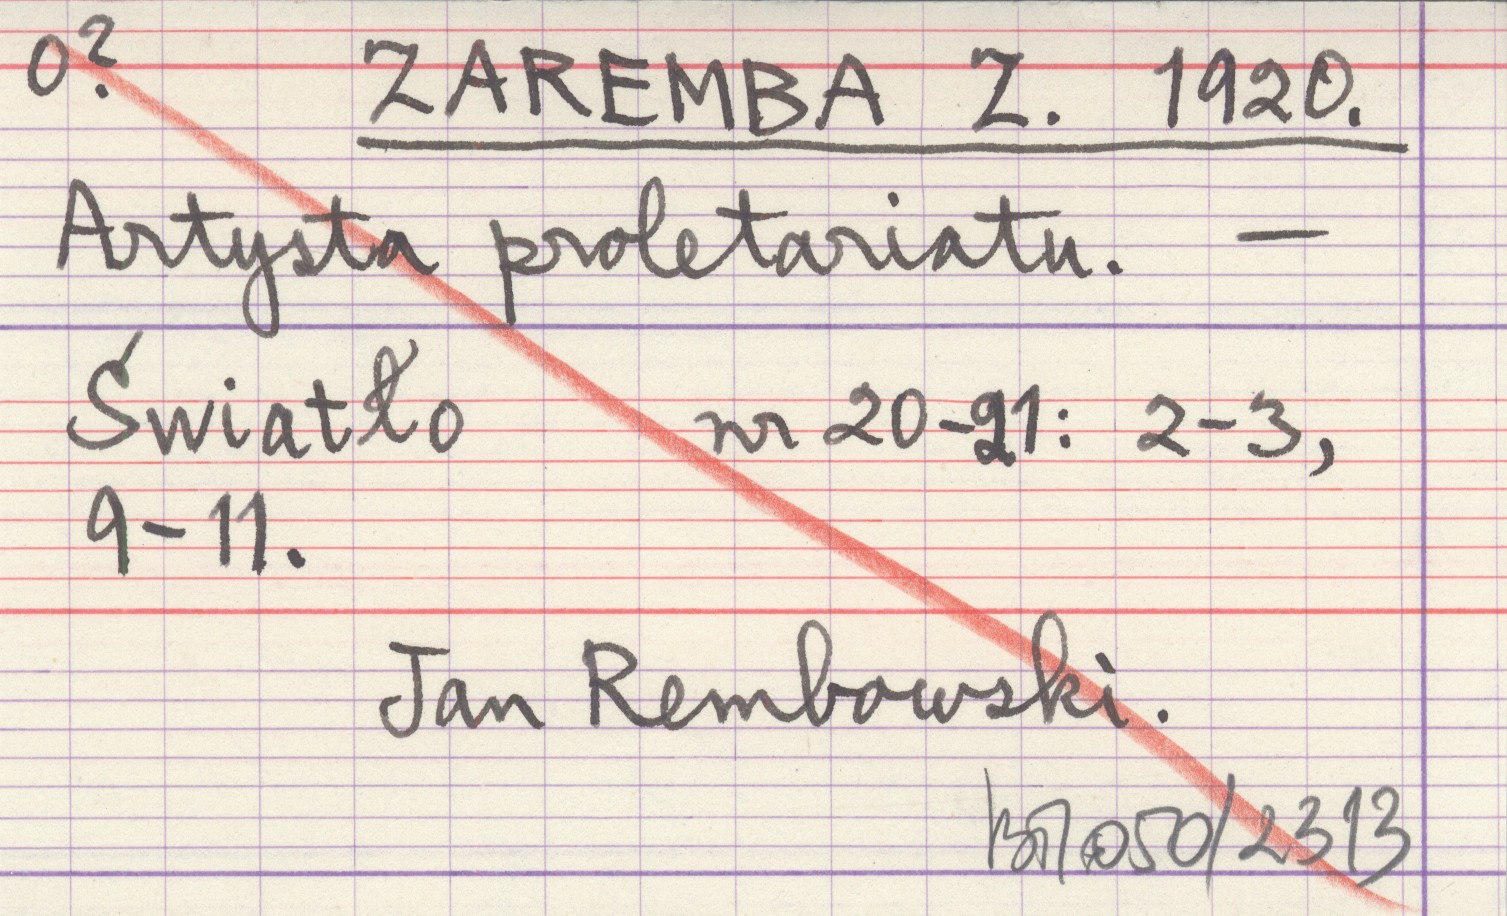 0? ZAREMBA Z. 1920.
Artysta proletariatu. —
Światło nr 20-21: 2-3,
9-11.
Jan Rembowski.
050/2313